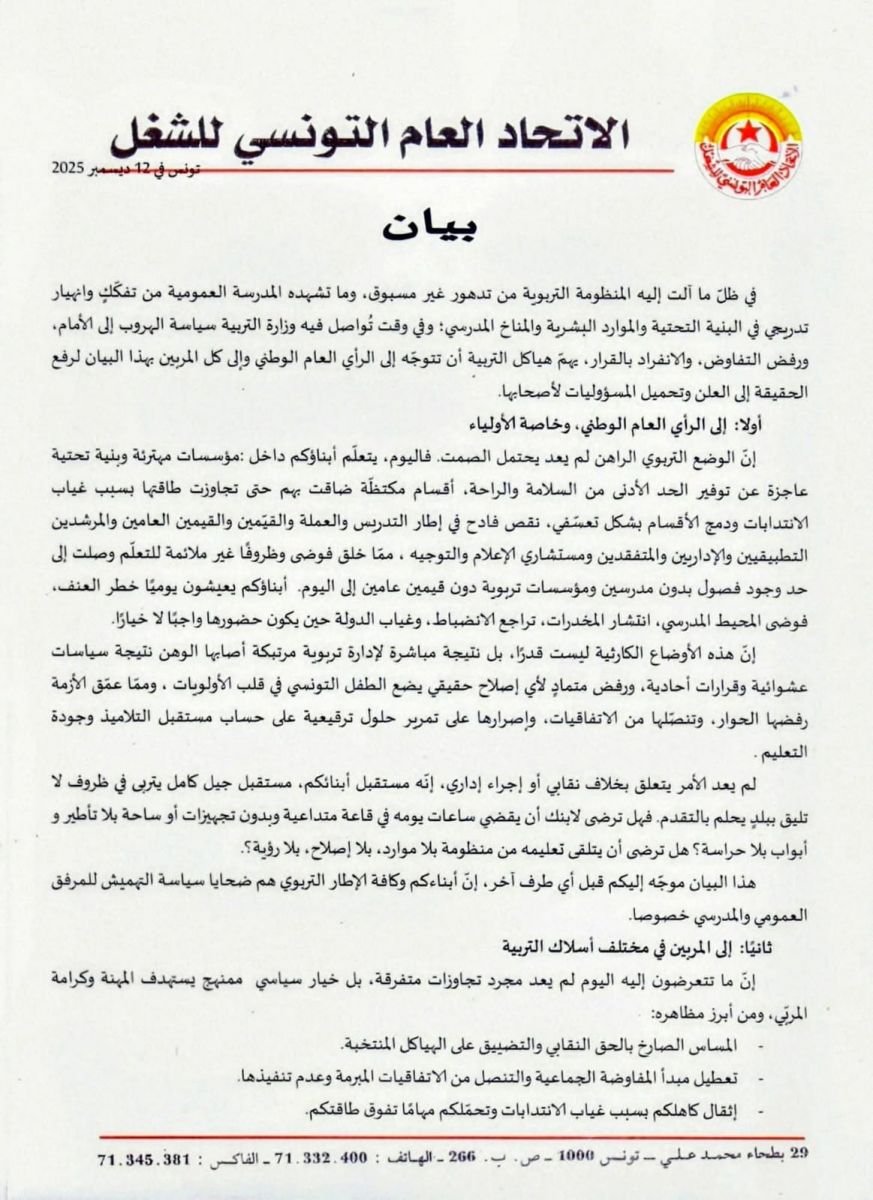 الاتحاد العام التونسي للشغل
الاتحاد العام التونسي للشغل
تونس في 12 ديسمبر 2025
بيان
في ظلّ ما آلت إليه المنظومة التربوية من تدهور غير مسبوق، وما تشهده المدرسة العمومية من تفكّكٍ وانهيار
تدريجي في البنية التحتية والموارد البشرية والمناخ المدرسي؛ وفي وقت تُواصل فيه وزارة التربية سياسة الهروب إلى الأمام،
ورفض التفاوض، والانفراد بالقرار، يهمّ هياكل التربية أن تتوجّه إلى الرأي العام الوطني وإلى كل المربين بهذا البيان لرفع
الحقيقة إلى العلن وتحميل المسؤوليات لأصحابها.
أولا: إلى الرأي العام الوطني، وخاصة الأولياء
إنّ الوضع التربوي الراهن لم يعد يحتمل الصمت. فاليوم، يتعلّم أبناؤكم داخل :مؤسسات مهترئة وبنية تحتية
عاجزة عن توفير الحد الأدنى من السلامة والراحة، أقسام مكتظّة ضاقت بهم حتى تجاوزت طاقتها بسبب غياب
الانتدابات ودمج الأقسام بشكل تعسّفي، نقص فادح في إطار التدريس والعملة والقيّمين والقيمين العامين والمرشدين
التطبيقيين والإداريين والمتفقدين ومستشاري الإعلام والتوجيه ، ممّا خلق فوضى وظروفًا غير ملائمة للتعلّم وصلت إلى
حد وجود فصول بدون مدرسين ومؤسسات تربوية دون قيمين عامين إلى اليوم. أبناؤكم يعيشون يوميًا خطر العنف،
فوضى المحيط المدرسي، انتشار المخدرات، تراجع الانضباط، وغياب الدولة حين يكون حضورها واجبًا لا خيارًا.
إنّ هذه الأوضاع الكارثية ليست قدرًا، بل نتيجة مباشرة لإدارة تربوية مرتبكة أصابها الوهن نتيجة سياسات
عشوائية وقرارات أحادية، ورفض متمادٍ لأي إصلاح حقيقي يضع الطفل التونسي في قلب الأولويات ، وممّا عمّق الأزمة
رفضها الحوار، وتنصّلها من الاتفاقيات، وإصرارها على تمرير حلول ترقيعية على حساب مستقبل التلاميذ وجودة
التعليم .
لم يعد الأمر يتعلق بخلاف نقابي أو إجراء إداري، إنّه مستقبل أبنائكم، مستقبل جيل كامل يتربى في ظروف لا
تليق ببلدٍ يحلم بالتقدم. فهل ترضى لابنك أن يقضي ساعات يومه في قاعة متداعية وبدون تجهيزات أو ساحة بلا تأطير و
أبواب بلا حراسة؟ هل ترضى أن يتلقى تعليمه من منظومة بلا موارد، بلا إصلاح، بلا رؤية؟.
هذا البيان موجّه إليكم قبل أي طرف آخر، إنّ أبناءكم وكافة الإطار التربوي هم ضحايا سياسة التهميش للمرفق
العمومي والمدرسي خصوصا.
ثانيًا: إلى المربين في مختلف أسلاك التربية
إنّ ما تتعرضون إليه اليوم لم يعد مجرد تجاوزات متفرقة، بل خيار سياسي ممنهج يستهدف المهنة وكرامة
المربّي، ومن أبرز مظاهره:
- المساس الصارخ بالحق النقابي والتضييق على الهياكل المنتخبة.
- تعطيل مبدأ المفاوضة الجماعية والتنصل من الاتفاقيات المبرمة وعدم تنفيذها.
- إثقال كاهلكم بسبب غياب الانتدابات وتحمّلكم مهامًا تفوق طاقتكم.
29 بطحاء محمد علي – تونس 1000 – ص. ب. 266 – الهاتف : 71.332.400 – الفاكس : 71.345.381